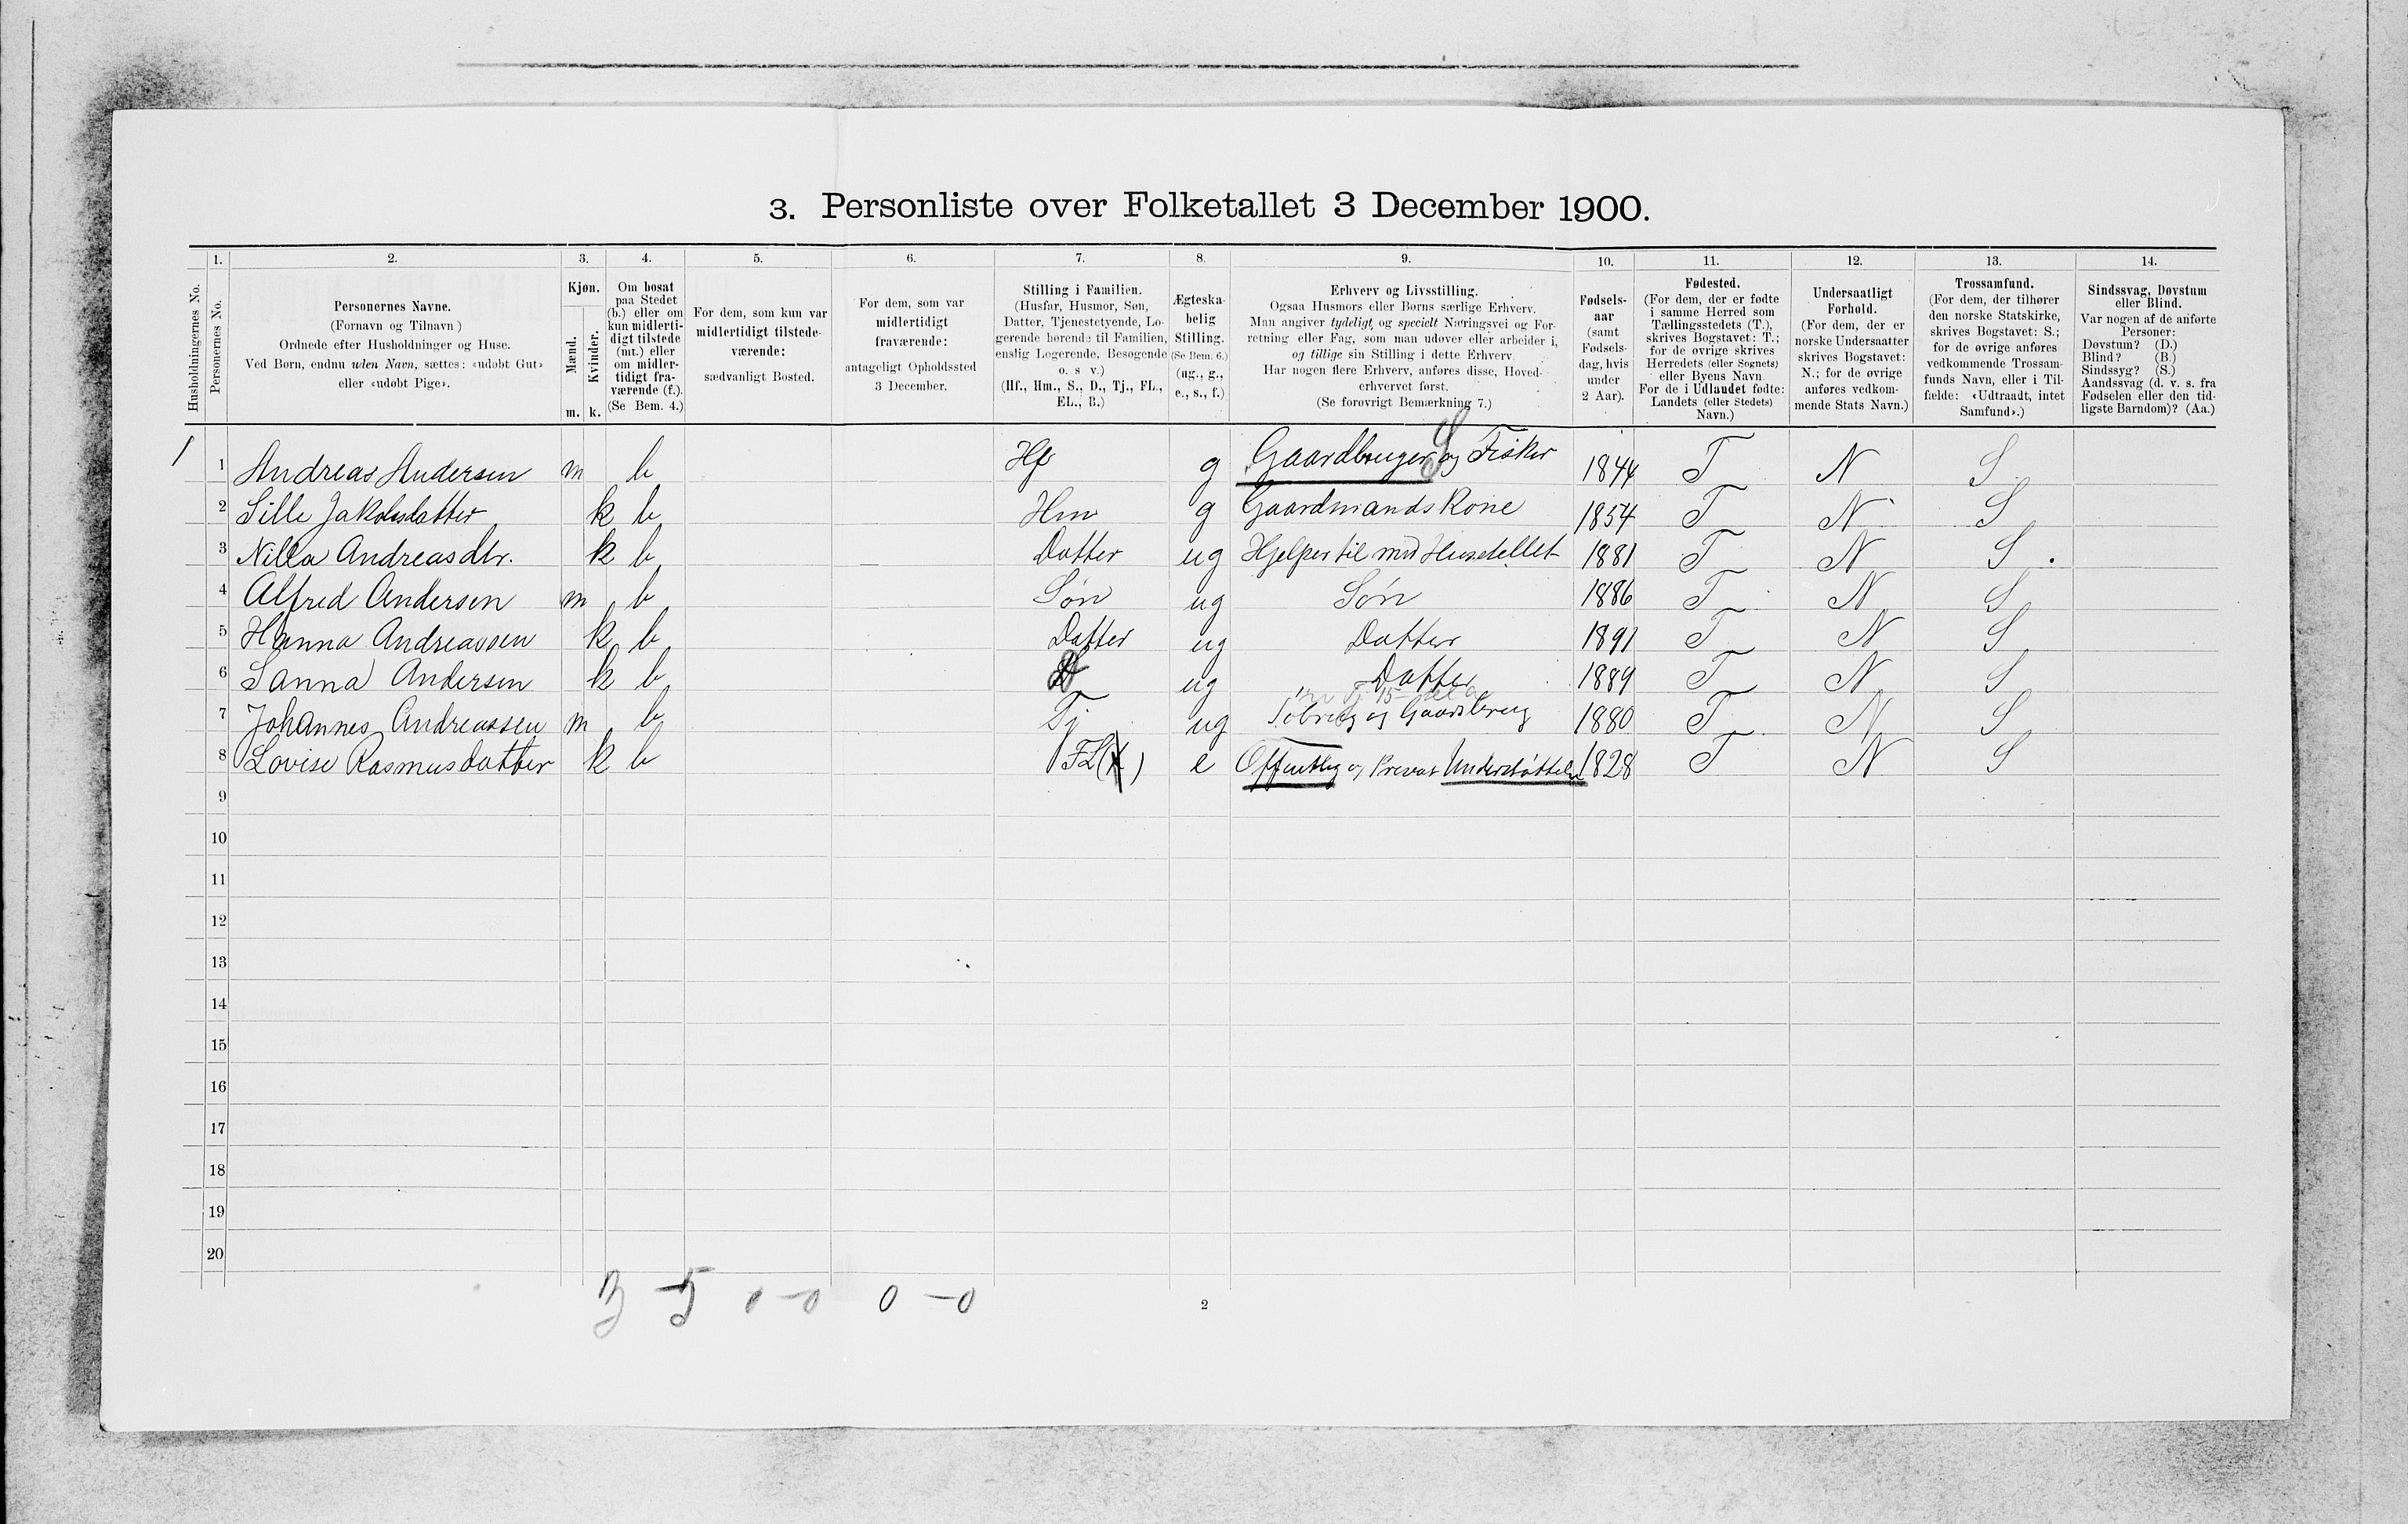 3. Personliste over Folketallet 3 December 1900.
1. 2. 3. 4. 5. 6. 7. 8. 9. 10. 11. 12. 13. 14.
Husholdningernes No.
Personernes No.
Personernes Navne.
(Fornavn og Tilnavn)
Ordnede efter Husholdninger og Huse.
Ved Børn, endnu uden Navn, sættes: «udøbt Gut»
eller «udøbt Pige».
Kjøn.
Mænd.
Kvinder.
m. k.
Om bosat
paa Stedet
(b.) eller om
kun midlerti-
digt tilstede
(mt.) eller
om midler-
tidigt fra-
værende (f.).
(Se Bem. 4.)
For dem, som kun var
midlertidigt tilstede-
værende:
sædvanligt Bosted.
For dem, som var
midlertidigt
fraværende:
antageligt Opholdssted
3 December.
Stilling i Familien.
(Husfar, Husmor, Søn,
Datter, Tjenestetyende, Lo-
gerende hørende til Familien,
enslig Logerende, Besøgende
o. s v.)
(Hf., Hm., S., D., Tj., FL.,
EL., B.)
Ægteska-
belig
Stilling.
(Se Bem. 6.)
(ug., g.,
e., s., f.)
Erhverv og Livsstilling.
Ogsaa Husmors eller Børns særlige Erhverv.
Man angiver tydeligt og specielt Næringsvei og For-
retning eller Fag, som man udøver eller arbeider i,
og tillige sin Stilling i dette Erhverv.
Har nogen flere Erhverv, anføres disse, Hoved-
erhvervet først.
(Se forøvrigt Bemærkning 7.)
Fødsels-
aar
(samt
Fødsels-
dag, hvis
under
2 Aar).
Fødested.
(For dem, der er fødte
i samme Herred som
Tællingsstedets (T.),
skrives Bogstavet: T.;
for de øvrige skrives
Herredets (eller Sognets)
eller Byens Navn
For de i Udlandet fødte:
Landets (eller Stedets)
Navn.)
Undersaatligt
Forhold.
(For dem, der er
norske Undersaatter
skrives Bogstavet:
N.; for de øvrige
anføres vedkom-
mende Stats Navn.)
Trossamfund.
(For dem, der tilhører
den norske Statskirke,
skrives Bogstavet: S.;
for de øvrige anføres
vedkommende Trossam-
funds Navn, eller i Til-
fælde: «Udtraadt, intet
Samfund».)
Sindssvag, Døvstum
eller Blind.
Var nogen af de anførte
Personer:
Døvstum? (D.)
Blind? (B.)
Sindssyg? (S.)
Aandssvag (d. v. s. fra
Fødselen eller den tid-
ligste Barndom)? (Aa.)
1 1 Andreas Andersen m b Hf g Gaardbruger og Fisker S 1844 T N S
2 Sille Jakobsdatter k b Hm g Gaardmands Kone 1854 T N S
3 Nilla Andreasdtr. k b Datter ug Hjelper til med Husstellet 1881 T N S
4 Alfred Andersen m b Søn ug Søn 1886 T N S
5 Hanna Andreassen k b Datter ug Datter 1891 T N S
6 Sanna Andersen k b D ug Datter 1889 T N S
7 Johannes Andreassen m b Tj ug og Gaardsbrug 1880 T N S
8 Lovise Rasmusdatter k b FL e Offentlig og Privat Understøttelse 1828 T N S
9
10
11
12
13
14
15
16
17
18
19
20
3 - 5 0 - 0 0 - 0
2